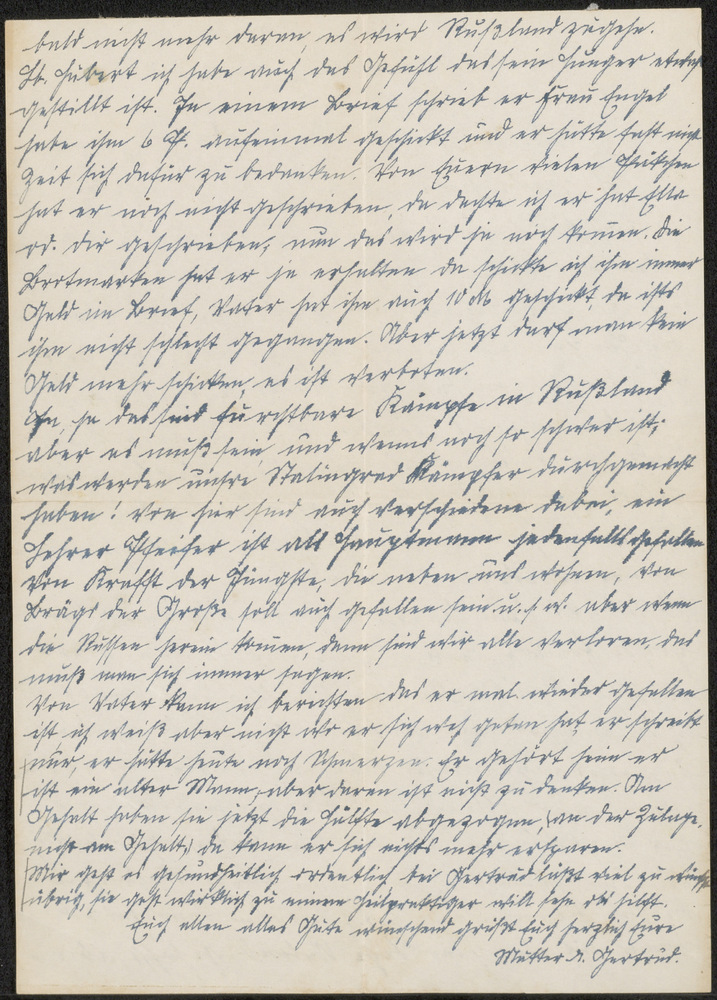 bald nicht mehr daran, es wird Rußland zugehn.
Lb. Hubert ich habe auch das Gefühl das sein Hunger etwas
gestillt ist. In einem Brief schrieb er Frau Engel
habe ihm 6 P. aufeinmal geschickt und er hätte fast nicht
Zeit sich dafür zu bedanken. Von Euern vielen Päckchen
hat er noch nicht geschrieben, da dachte ich er hat Ella
od. Dir geschrieben, nun das wird ja noch kommen. Die
Brotmarken hat er ja erhalten da schickte ich ihm immer
Geld im Brief, Vater hat ihm auch 10 M geschickt, da ists
ihm nicht schlecht gegangen. Aber jetzt darf man kein
Geld mehr schicken, es ist verboten.
Ja, ja das sind furchtbare Kämpfe in Rußland
aber es muß sein und wenns noch so schwer ist,
was werden unsre Stalingrad Kämpfer durchgemacht
haben! Von hier sind auch verschiedene dabei, ein
Lehrer Pfeifer ist als Hauptmann jedenfalls gefallen
von Krafft der Jüngste, die neben uns wohnen, von
der Große soll auch gefallen sein u. s. w. aber wenn
die Russen herein kommen, dann sind wir alle verloren, das
muß man sich immer sagen.
Von Vater kann ich berichten das er mal wieder gefallen
ist ich weiß aber nicht wo er sich weh getan hat, er schreibt
nur, er hätte heute noch Schmerzen. Er gehört heim er
ist ein alter Mann, aber daran ist nicht zu denken. Am
Gehalt haben sie jetzt die Hälfte abgezogen, (an der Zulage,
nicht am Gehalt,) da kann er sich nichts mehr ersparen.
Mir geht es gesundheitlich ordentlich bei Gertrud läßt viel zu wünschen
übrig, sie geht wirklich zu einem Heilpraktiker will sehn ob hilft.
Euch allen alles Gute wünschend grüßt Euch herzlich Eure
Mutter u. Gertrud.